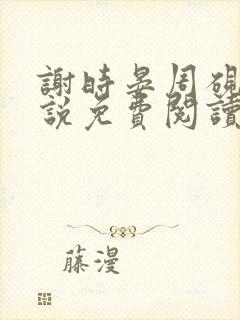 謝時晏周硯
説免費閱讀
藤漫